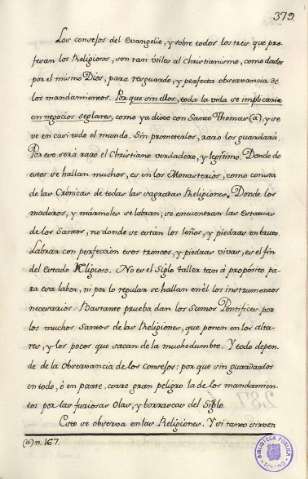 379
Los consejos del Evangelio, y sobre todos los tres que pro-
fesan los Religiosos, son tan útiles al Christianismo, como dados
por el mismo Dios, para resguardo, y perfecta observancia de
los mandamientos. Por que sin ellos, toda la vida se implicaria
en negocios seglares, como ya dixe con Santo Thomas (a), y se
ve en casi todo el mundo. Sin prometerlos, raro los guardará.
Por eso será raro el Christiano verdadero, y legítimo. Donde de
estos se hallan muchos, es en los Monasterios, como consta
de las Crónicas de todas las sagradas Religiones. Donde los
maderos, y mármoles se labran, se encuentran las Estatuas
de los Santos, no donde se están los leños, y piedras en bruto.
Labrar con perfección esos troncos, y piedras vivas, es el fin
del Estado Religioso. No es el Siglo taller tan á propósito pa-
ra esta labor, ni por lo regular se hallan en él los instrumentos
necesarios. Bastante prueba dan los Sumos Pontífices por
los muchos Santos de las Religiones, que ponen en los Alta-
res, y los pocos que sacan de la muchedumbre. Y todo depen-
de de la Observancia de los Consejos: por que sin guardarlos
en todo, ó en parte, corre gran peligro la de los mandamien-
tos por las furiosas olas, y borrascas del Siglo.
Esto se observa en las Religiones. Y si tanto sirven
(a) n. 167.
BIBLIOTECA PUBLICA